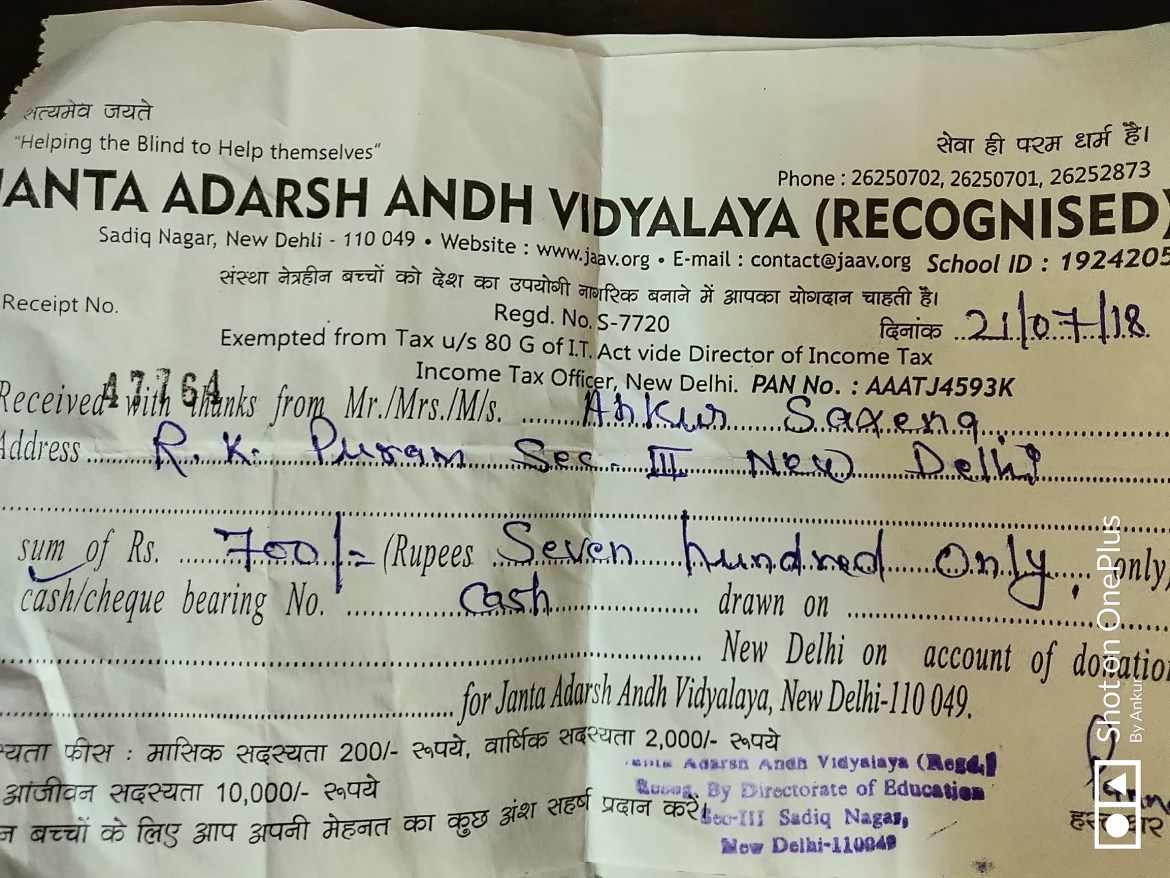 सत्यमेव जयते
"Helping the Blind to Help themselves"
सेवा ही परम धर्म है।
Phone : 26250702, 26250701, 26252873
JANTA ADARSH ANDH VIDYALAYA (RECOGNISED)
Sadiq Nagar, New Dehli - 110 049 • Website : www.jaav.org • E-mail : contact@jaav.org School ID : 1924205
संस्था नेत्रहीन बच्चों को देश का उपयोगी नागरिक बनाने में आपका योगदान चाहती है।
Receipt No. Regd. No. S-7720 दिनांक 21/07/18
Exempted from Tax u/s 80 G of I.T. Act vide Director of Income Tax
Income Tax Officer, New Delhi. PAN No. : AAATJ4593K
47764
Received with thanks from Mr./Mrs./M/s. Ankur Saxena
Address R.K. Puram Sec. III New Delhi
sum of Rs. 700/- (Rupees Seven hundred Only only
cash/cheque bearing No. Cash drawn on
New Delhi on account of donation
for Janta Adarsh Andh Vidyalaya, New Delhi-110 049.
स्यता फीस : मासिक सदस्यता 200/- रूपये, वार्षिक सदस्यता 2,000/- रूपये
आंजीवन सदस्यता 10,000/- रूपये
न बच्चों के लिए आप अपनी मेहनत का कुछ अंश सहर्ष प्रदान करें
Janta Adarsh Andh Vidyalaya (Regd.)
Recog. By Directorate of Education
Sec-III Sadiq Nagar,
New Delhi-110049
Shot on OnePlus
By Ankur